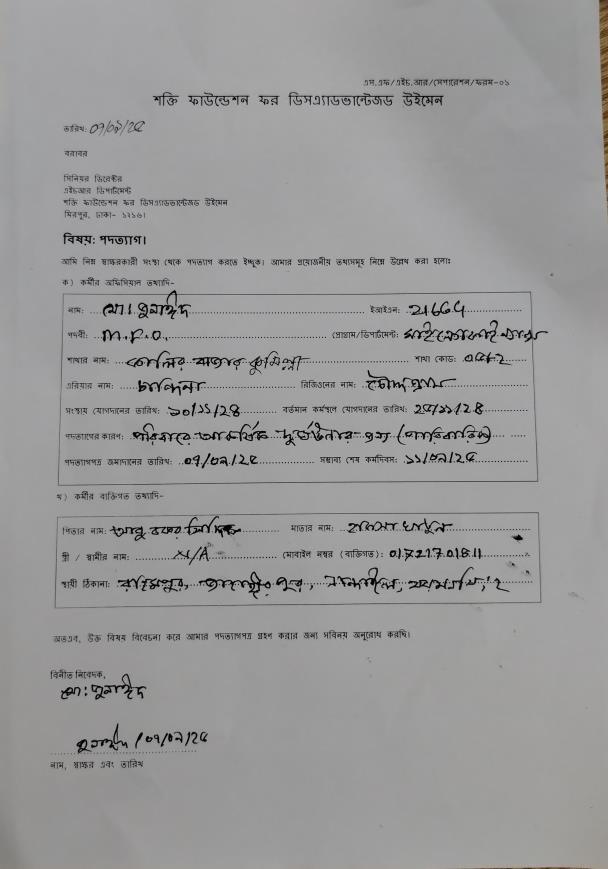 এস.এফ/এইচ.আর/সেপারেশন/ফরম-০১
শক্তি ফাউন্ডেশন ফর ডিসএ্যাডভান্টেজড উইমেন
তারিখ:
বরাবর
সিনিয়র ডিরেক্টর
এইচআর ডিপার্টমেন্ট
শক্তি ফাউন্ডেশন ফর ডিসএ্যাডভান্টেজড উইমেন
মিরপুর, ঢাকা- ১২১৬।
বিষয়: পদত্যাগ।
আমি নিম্ন স্বাক্ষরকারী সংস্থা থেকে পদত্যাগ করতে ইচ্ছুক। আমার প্রয়োজনীয় তথ্যসমূহ নিম্নে উল্লেখ করা হলো:
ক) কর্মীর অফিসিয়াল তথ্যাদি-
নাম: মো: জুনাঈদ ইআইএন: 21664
পদবী: M.F.O. প্রোগ্রাম/ডিপার্টমেন্ট:
শাখার নাম: কালির বাজার কুমিল্লা শাখা কোড:
এরিয়ার নাম: চান্দিনা রিজিওনের নাম: চৌদ্দগ্রাম
সংস্থায় যোগদানের তারিখ: ১০/১১/২৪ বর্তমান কর্মস্থলে যোগদানের তারিখ: ২৫/১১/২৪
পদত্যাগের কারণ: পরিবারে আকস্মিক দুর্ঘটনার জন্য (পারিবারিক)
পদত্যাগপত্র জমাদানের তারিখ: সম্ভাব্য শেষ কর্মদিবস:
খ) কর্মীর ব্যক্তিগত তথ্যাদি-
পিতার নাম: আবু বকর সিদ্দিক মাতার নাম: খাতুন
স্ত্রী / স্বামীর নাম: N/A মোবাইল নম্বর (ব্যক্তিগত):
স্থায়ী ঠিকানা: রহিমপুর, জাহাঙ্গীরপুর, নান্দাইল, ময়মনসিংহ
অতএব, উক্ত বিষয় বিবেচনা করে আমার পদত্যাগপত্র গ্রহণ করার জন্য সবিনয় অনুরোধ করছি।
বিনীত নিবেদক,
মো: জুনাঈদ
জুনাঈদ
নাম, স্বাক্ষর এবং তারিখ